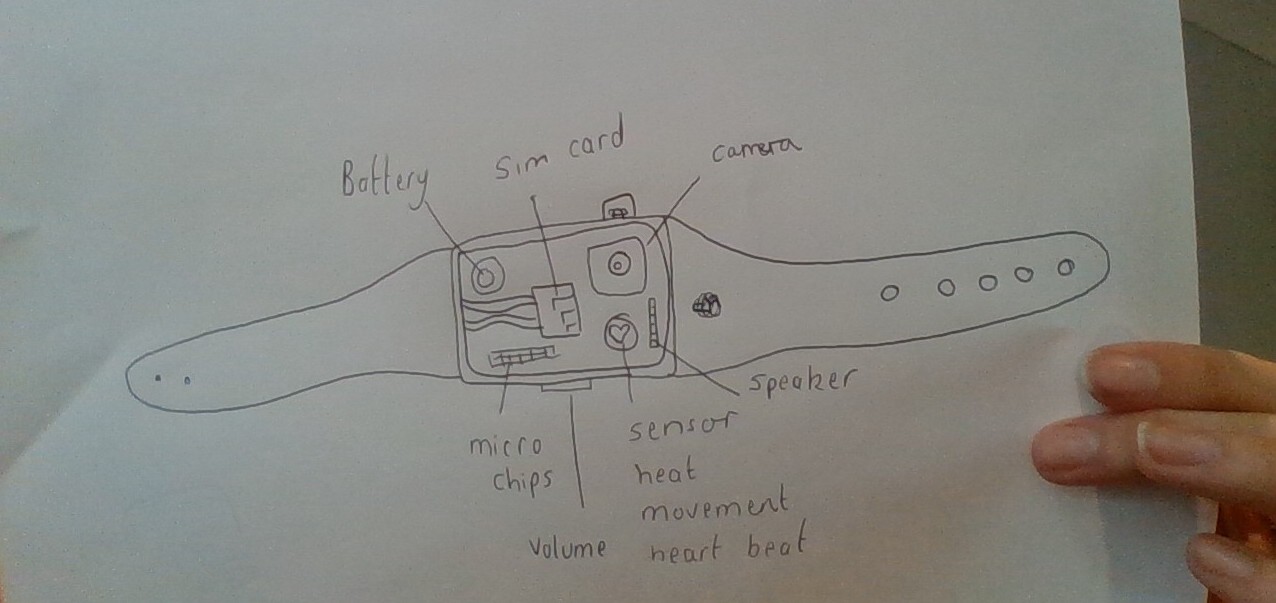 Battery
sim card
camera
speaker
micro
chips
volume
sensor
heat
movement
heart beat